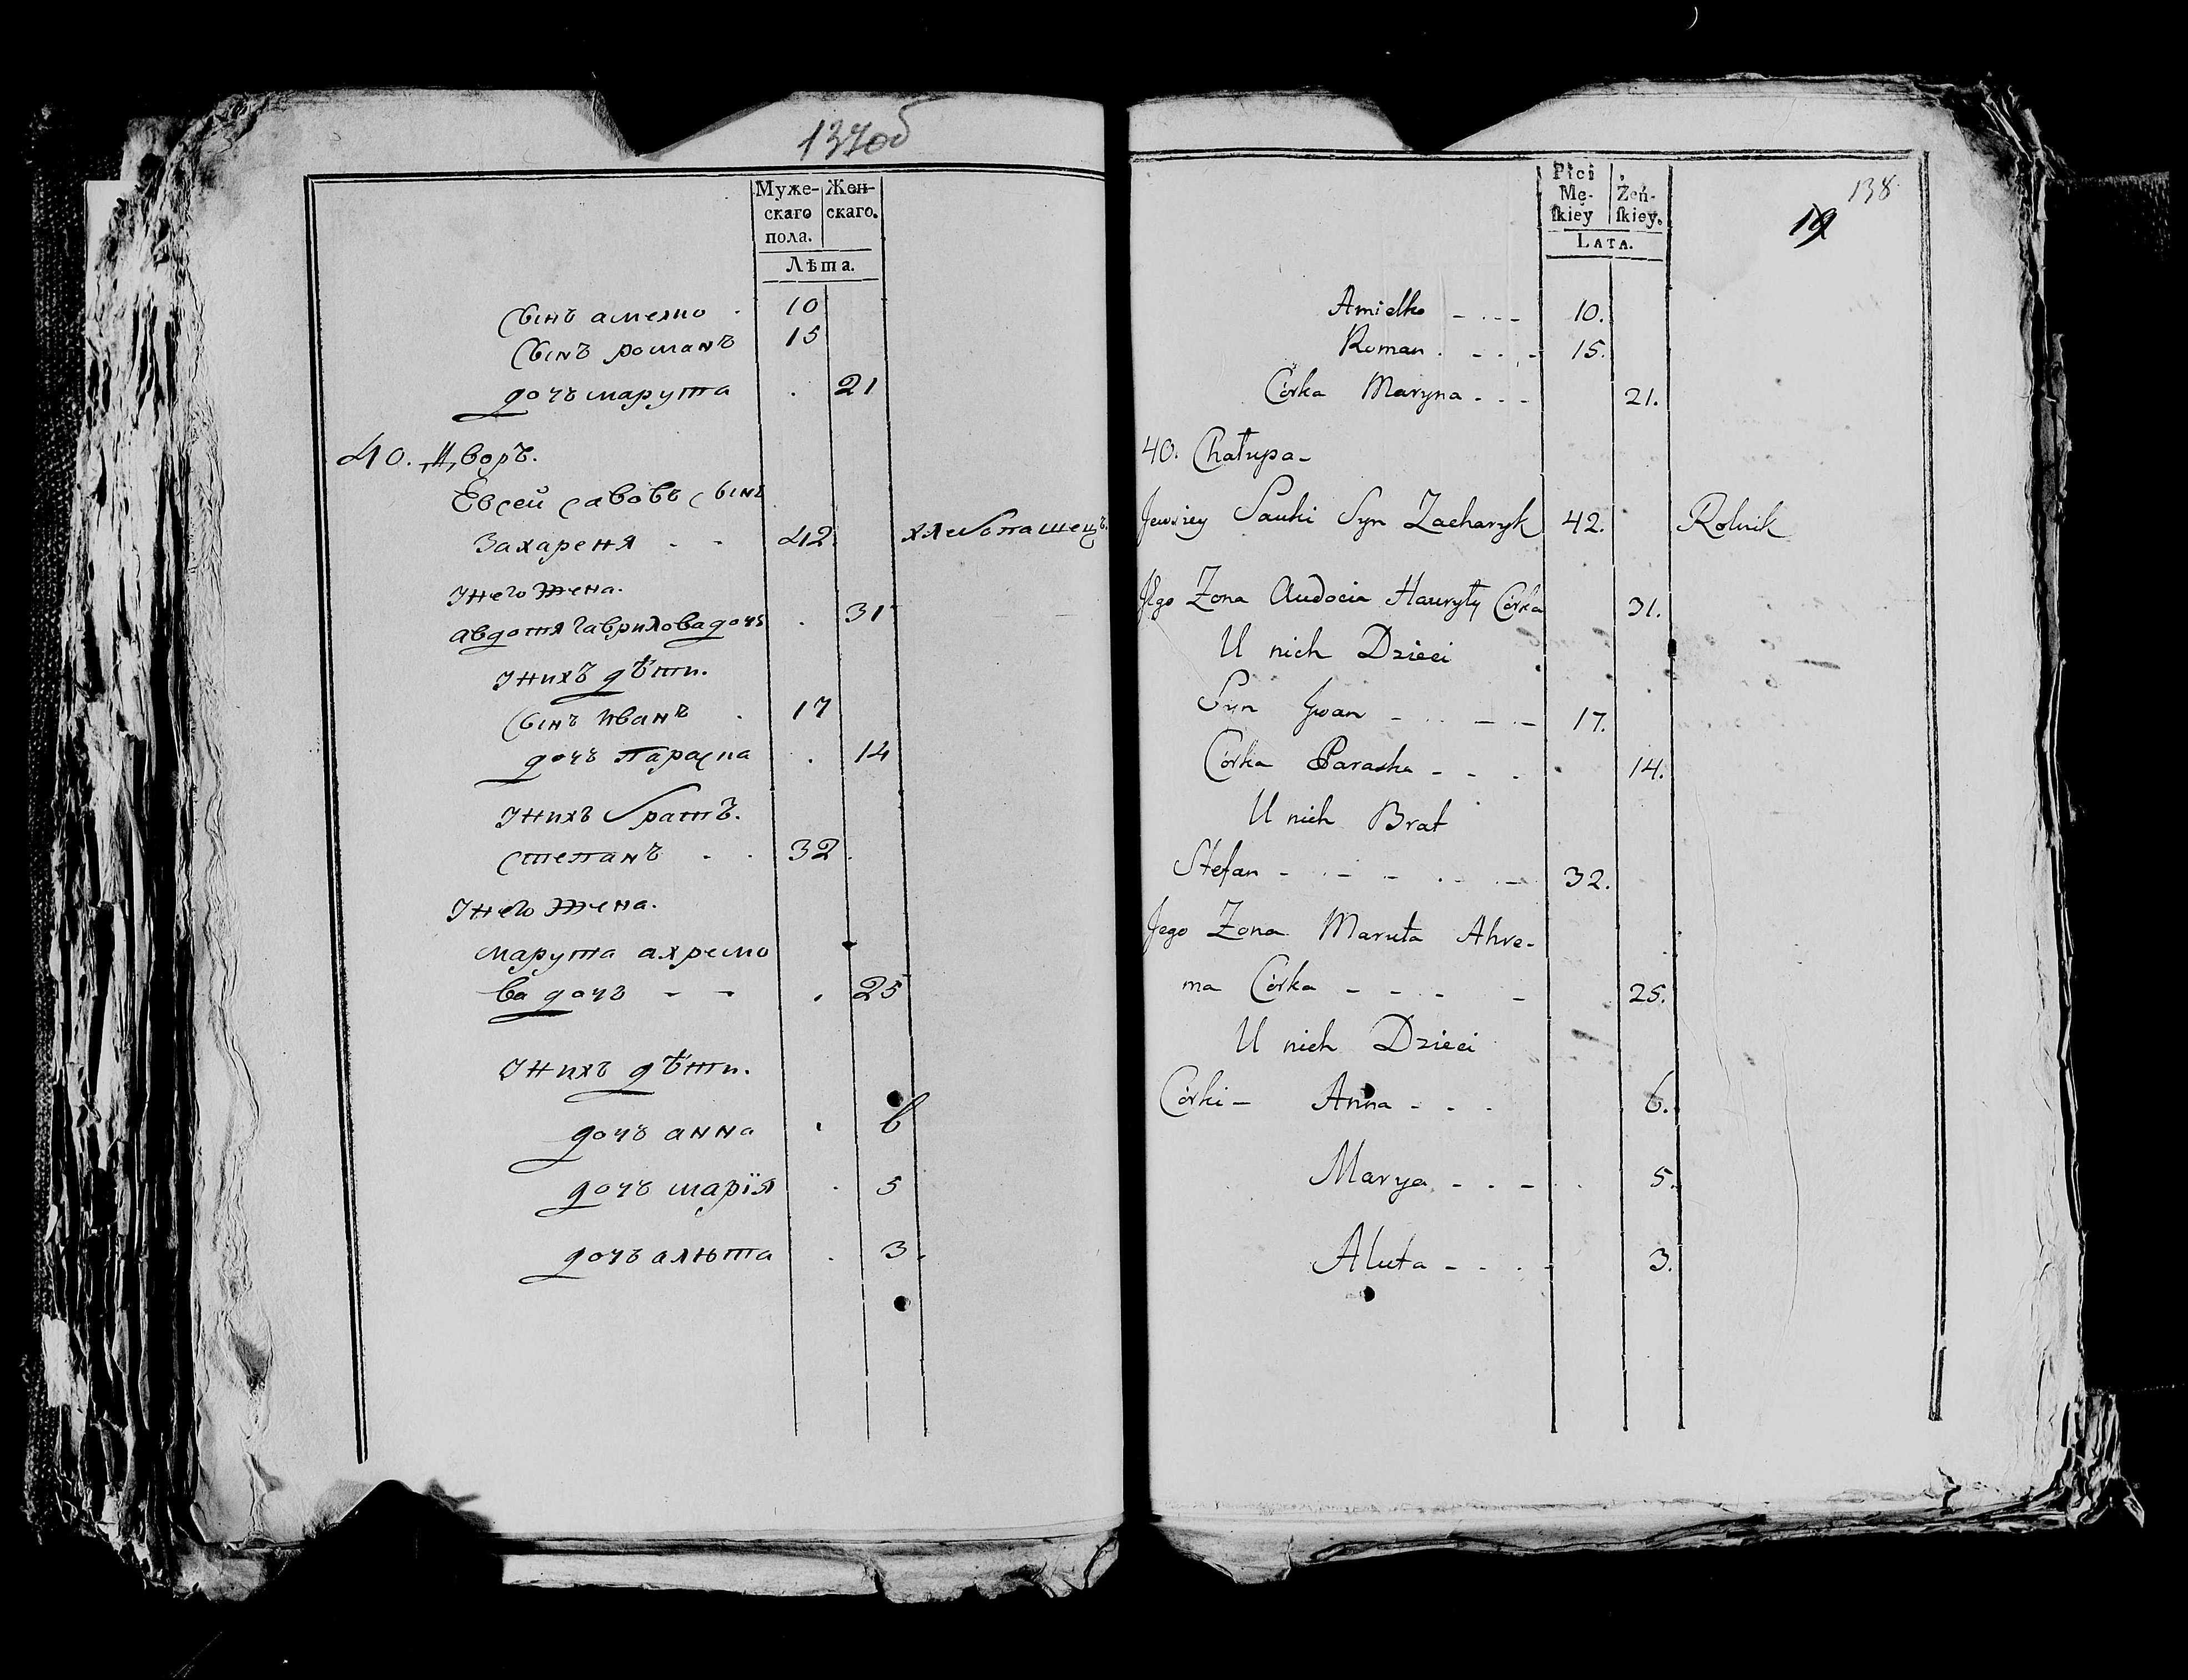 137об
Муже- Жен-
скаго скаго.
пола.
Лѣта.
сынъ амелко . 10
сынъ романъ 15
дочъ марута . 21
40. Дворъ.
Евсей савовъ сынъ
Захареня - - 42. хлебопашецъ.
унего жена.
авдотя гаврилова дочъ . 31
унихъ дѣти.
сынъ иванъ . 17
дочъ параска . 14
унихъ братъ.
степанъ . . 32.
унего жена.
марута ахремо
ва дочъ - - . 25
унихъ дѣти.
дочъ анна . 6
дочъ марія . 5
дочъ алюта . 3.
138
19
Płci
Mę- Żeń-
ſkiey ſkiey.
LATA.
Amielko - - - 10.
Roman . - . - 15.
Córka Maryna - - - 21.
40. Chałupa -
Jewsiey Sauki Syn Zacharyk 42. Rolnik
Jego Zona Audocia Hauryły Córka 31.
U nich Dzieci
Syn Jwan - . . - - 17.
Córka Paraska - - . 14.
U nich Brat
Stefan - . - - . . - 32.
Jego Zona Maruta Ahre-
ma Córka - - - - 25.
U nich Dzieci
Córki - Anna - - . 6.
Marya - - - . 5.
Aluta - - . - 3.